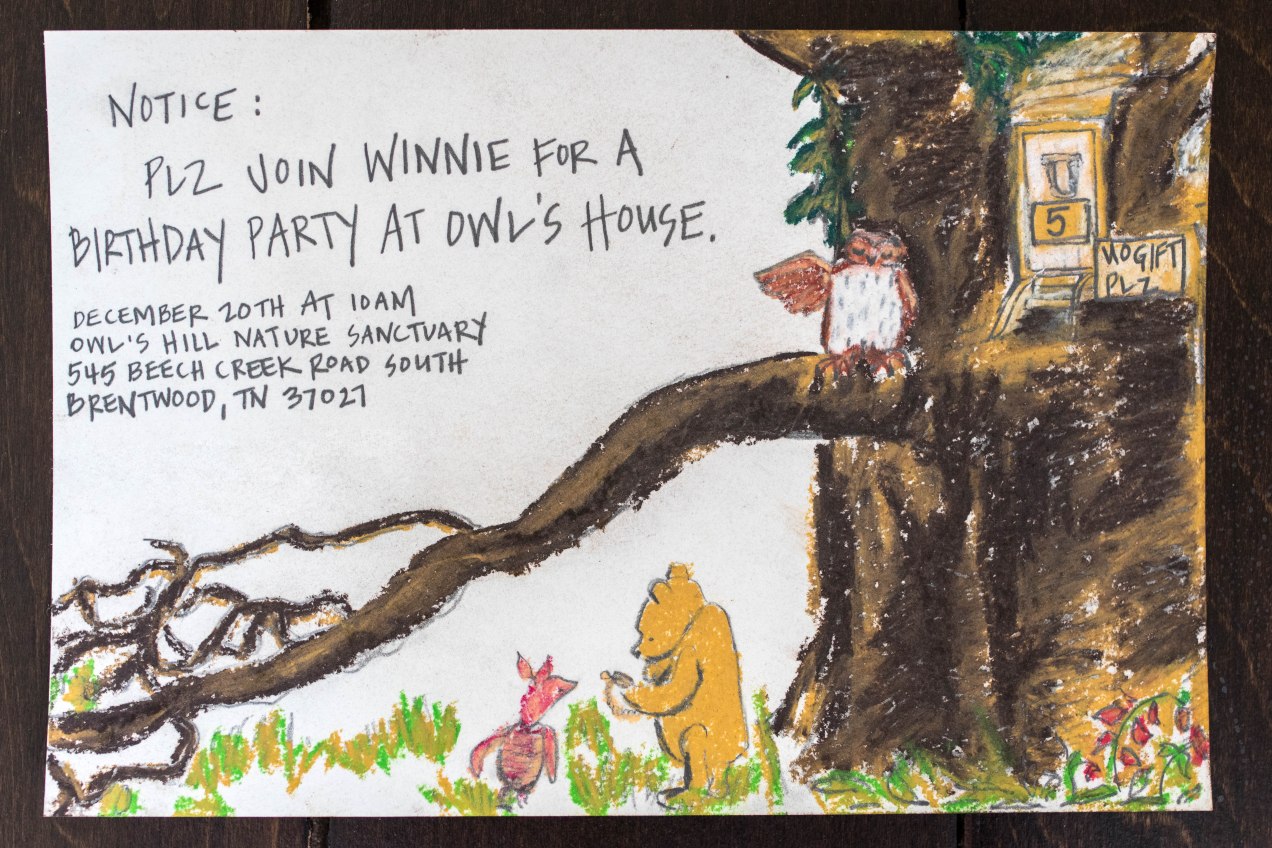 NOTICE:
PLZ JOIN WINNIE FOR A
BIRTHDAY PARTY AT OWL'S HOUSE.
DECEMBER 20TH AT 10AM
OWL'S HILL NATURE SANCTUARY
545 BEECH CREEK ROAD SOUTH
BRENTWOOD, TN 37027
U
5
NO GIFT
PLZ